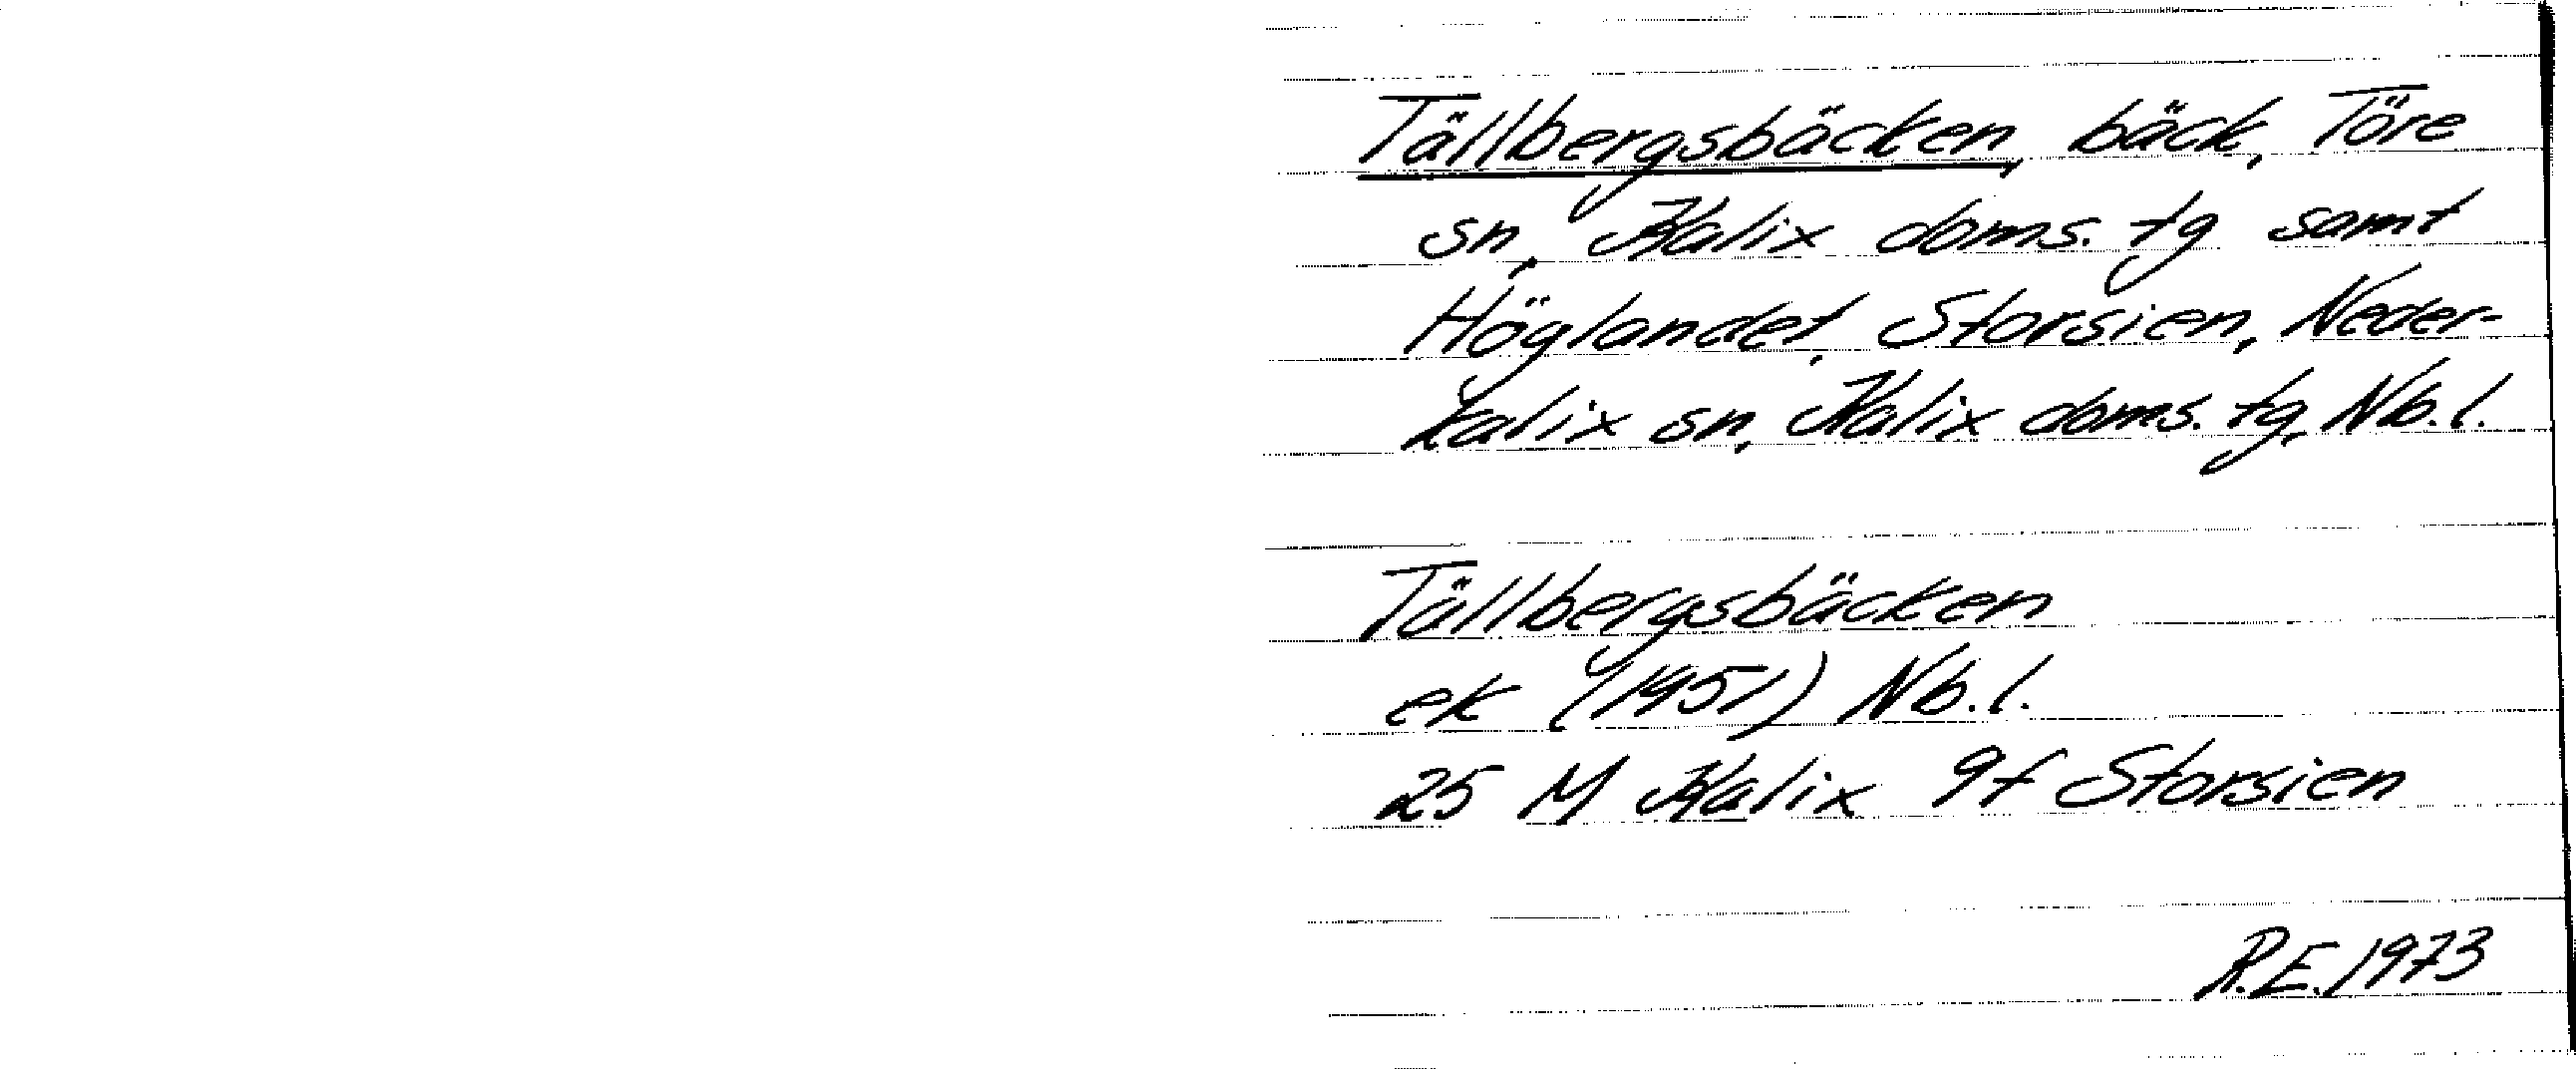 Tällbergsbäcken, bäck, Töre
sn, Kalix doms. tg samt
Höglandet, Storsien, Neder-
kalix sn, Kalix doms. tg, Nb.l.
Tällbergsbäcken
ek (1951) Nb.l.
25 M Kalix 9f Storsien
R.E. 1973